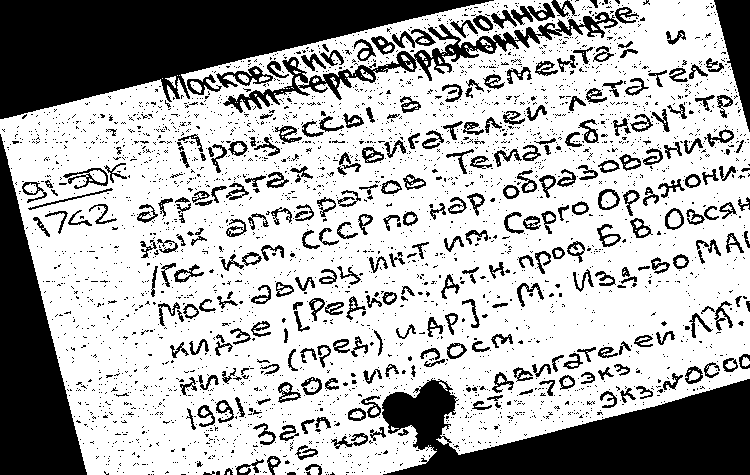 Московский авиационный
им. Серго Орджоникидзе
Процессы в элементах и
агрегатах двигателей летатель
ных аппаратов: Темат. сб. науч. тр
/Гос. ком. СССР по нар. образованию,
Моск. авиац. ин-т им. Серго Орджони-
кидзе; [Редкол.: д.т.н. проф. Б. В. Овсян
ников (пред.) и др.]. - М.: Изд-во МАИ
1991. - 80с.: ил.; 20см.
Загл. об двигателей ЛА.
ст. - 70 экз.
в конц
Экз. №0000
91-50К
1742